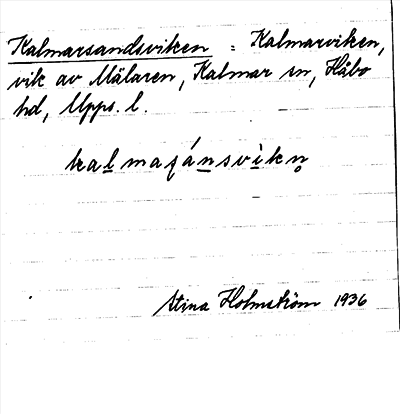 Kalmarsandsviken = Kalmarviken,
vik av Mälaren, Kalmar sn, Håbo
hd, Upps. l.
kalmaʂánsvìkn̥
Stina Holmström 1936